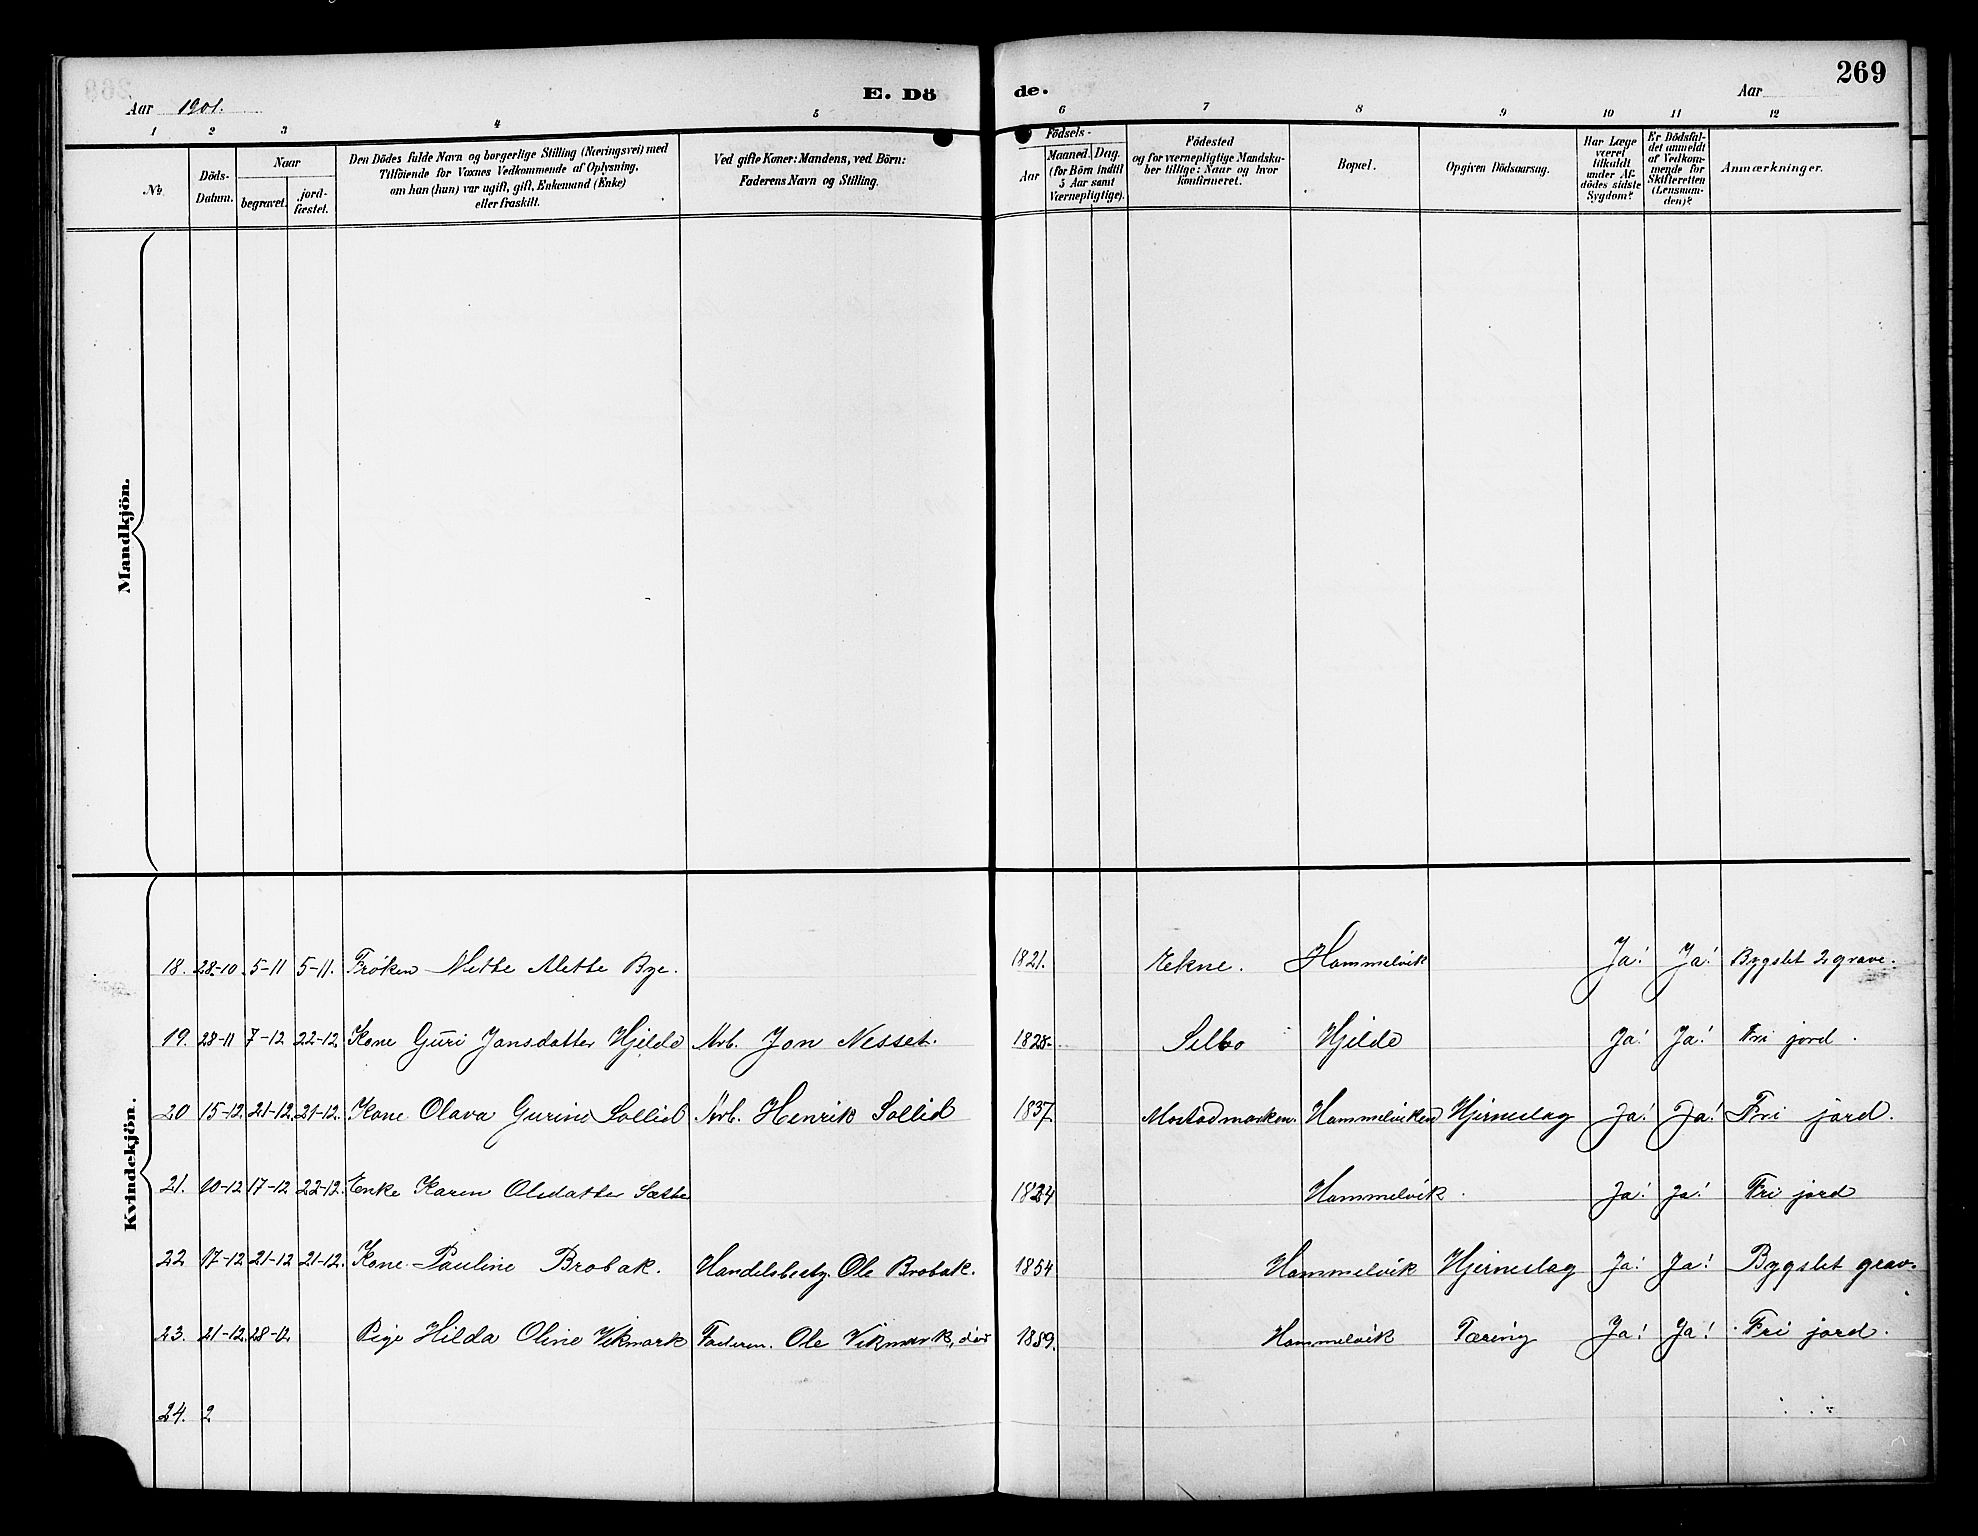 269
Aar 1901.
E. Dö de.
Aar
1 2 3 4 5 6 7 8 9 10 11 12
No.
Döds-Datum.
Naar
begravet.
jord-fæstet.
Den Dödes fulde Navn og borgerlige Stilling (Næringsvei) med
Tilföiende for Voxnes Vedkommende af Oplysning,
om han (hun) var ugift, gift, Enkemand (Enke)
eller fraskilt.
Ved gifte Koner: Mandens, ved Börn:
Faderens Navn og Stilling.
Födsels-
Aar
Maaned. Dag.
(for Börn indtil
5 Aar samt
Værnepligtige).
Födested
og for værnepligtige Mandska-
ber tillige: Naar og hvor
konfirmeret.
Bopæl.
Opgiven Dödsaarsag.
Har Læge
været
tilkaldt
under Af-
dödes sidste
Sygdom?
Er Dödsfal-
det anmeldt
af Vedkom-
mende for
Skifteretten
(Lensman-
den)?
Anmærkninger.
Mandkjön.
Kvindekjön.
18. 28-10. 5-11 5-11. Frøken Mette Alette Bye. 1821. Ekne. Hommelvik Ja! Ja! Bygslet 2 grave.
19. 28-11 7-12 22-12. Kone Guri Jonsdatter Hjelde Arb. Jon Nesset. 1828. Selbo Hjelde Ja! Ja! Fri jord.
20 15-12. 21-12. 21-12. Kone Olava Gurine Sollid Arb. Henrik Sollid 1837. Mostadmarken. Hommelviken Hjerneslag Ja! Ja! Fri jord.
21. 10-12 17-12 22-12. Enke Karen Olsdatter Sætte 1824 Hommelvik. Ja! Ja! Fri jord
22 17-12 21-12 21-12. Kone Pauline Brobak. Handelsbesty. Ole Brobak. 1854 Hommelvik Hjerneslag Ja! Ja! Bygslet grav.
23. 21-12. 28-12. Pige Hilda Oline Vikmark Faderen. Ole Vikmark, 1889. Hommelvik Tæring Ja! Ja! Fri jord.
24. 2